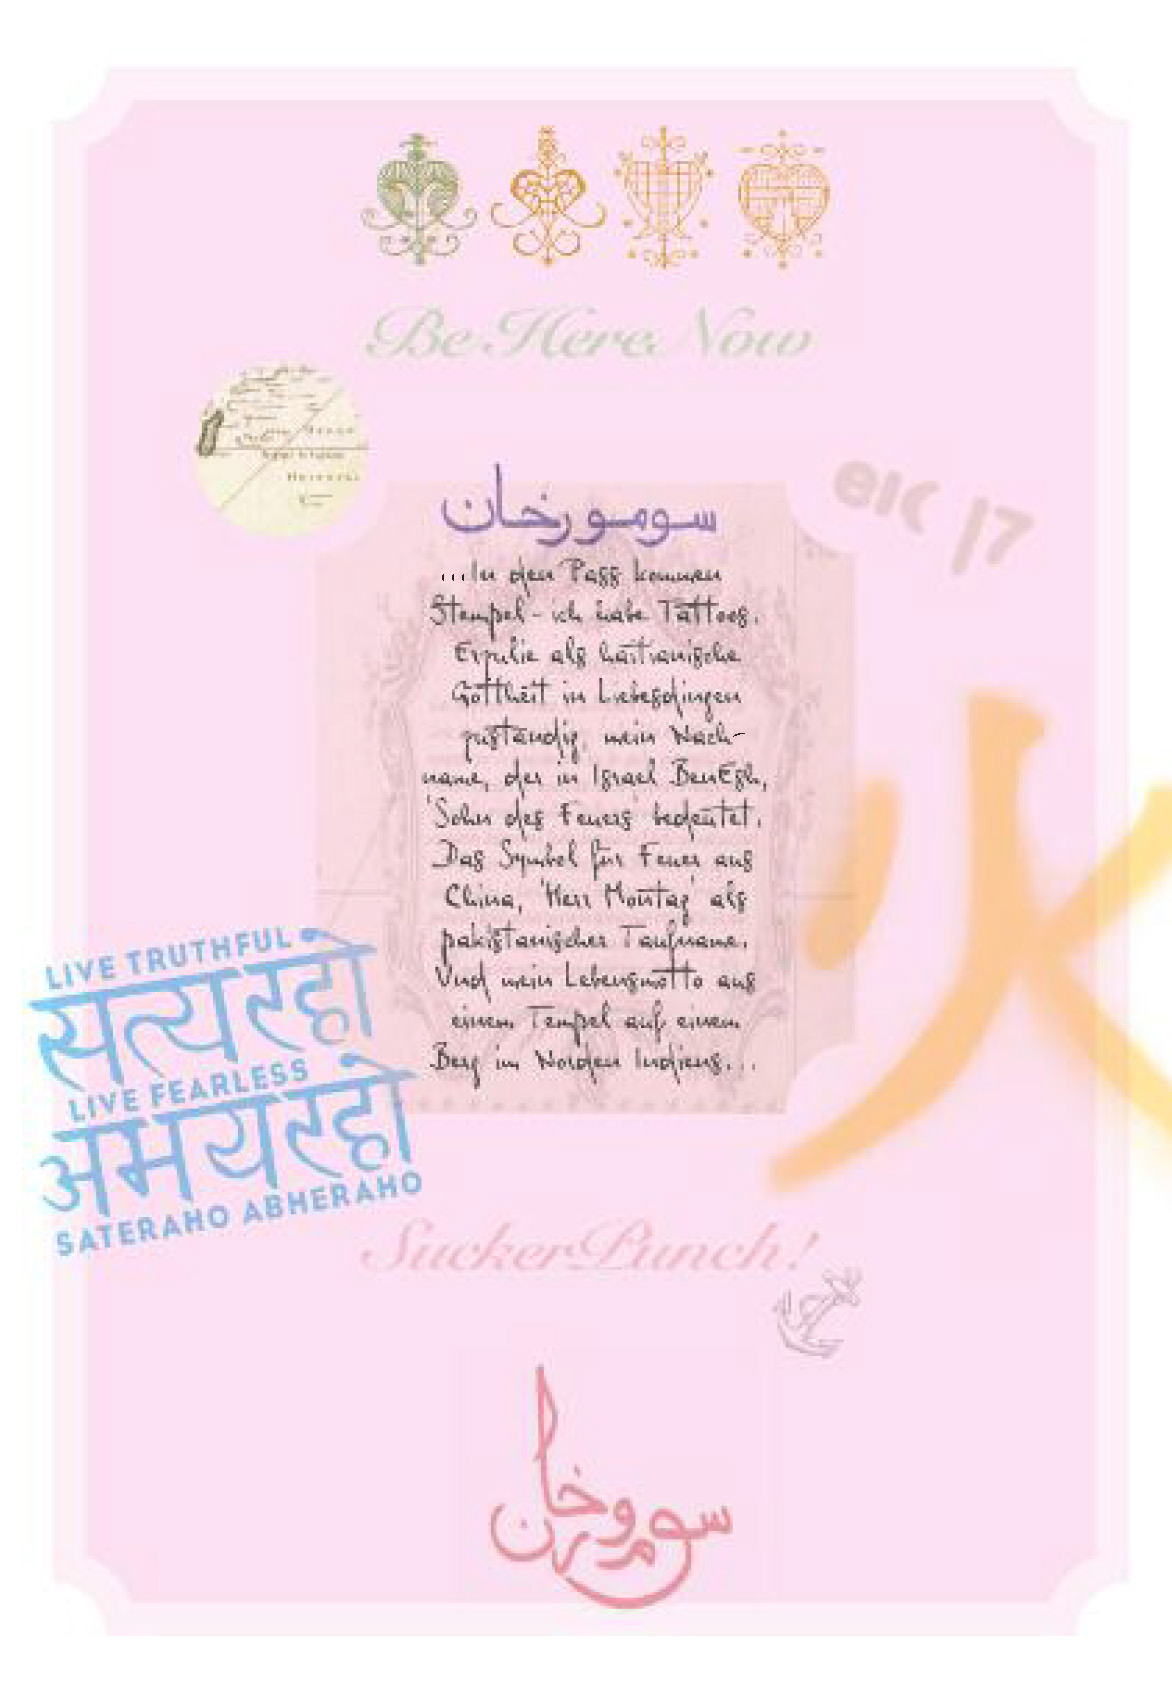 Be Here Now
سومورخان
...In den Pass kommen
Stempel - ich habe Tattoos.
Erzulie als haitianische
Gottheit in Liebesdingen
zuständig, mein Nach-
name, der in Israel BenEsh,
'Sohn des Feuers' bedeutet.
Das Symbol für Feuer aus
China, 'Herr Montag' als
pakistanischer Taufname.
Und mein Lebensmotto aus
einem Tempel auf einem
Berg im Norden Indiens...
火
LIVE TRUTHFUL
सत्य रहो
LIVE FEARLESS
अभय रहो
SATERAHO ABHERAHO
SuckerPunch!
سومورخان